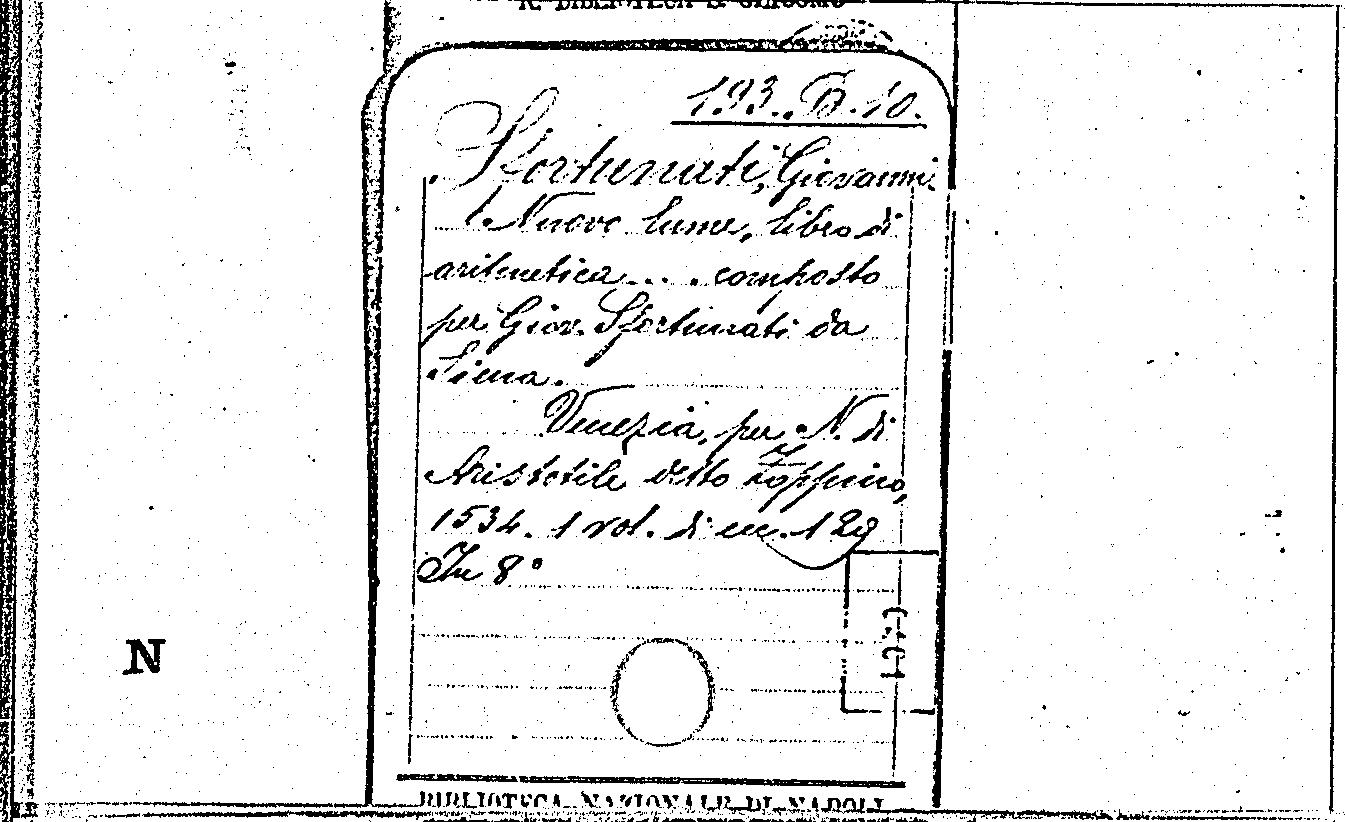 193. B. 10.
Sfortunati, Giovanni.
Nuovo lume, libro di
aritmetica.... composto
per Giov. Sfortunati da
Siena.
Venezia, per N. di
Aristotile detto Zoppino,
1534. 1 vol. di cc. 129
In 8°
N
BIBLIOTECA NAZIONALE DI NAPOLI